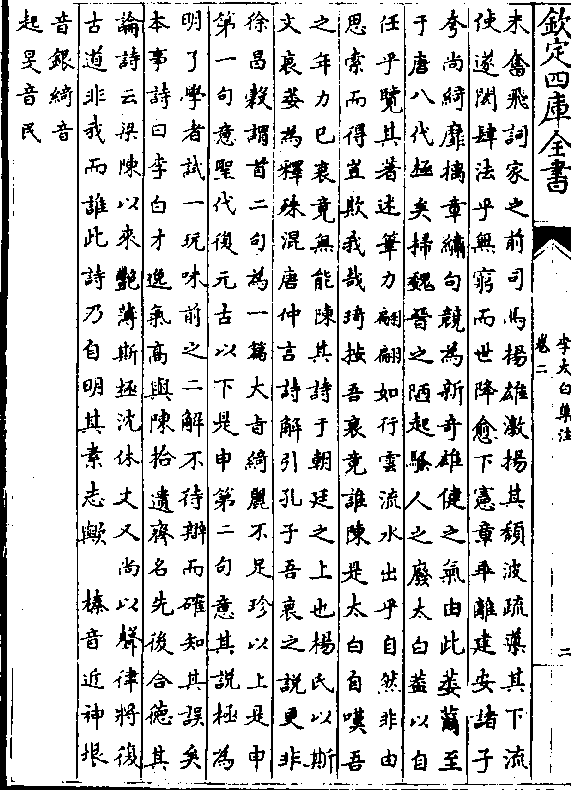 欽定四庫全書
李太白集注
卷二
二
未奮飛詞家之前司馬揚雄激揚其頹波疏導其下流
使遂閎肆法乎無窮而世降愈下憲章乖離建安諸子
夸尚綺靡摛章繡句競為新奇雄健之氣由此萎薾至
于唐八代極矣掃魏晉之陋起騷人之廢太白葢以自
任乎覽其著述筆力翩翩如行雲流水出乎自然非由
思索而得豈欺我哉琦按吾衰竟誰陳是太白自嘆吾
之年力已衰竟無能陳其詩于朝廷之上也楊氏以斯
文衰萎為釋殊混唐仲言詩解引孔子吾衰之說更非
徐昌榖謂首二句為一篇大㫖綺麗不足珍以上是申
第一句意聖代復元古以下是申第二句意其說極為
明了學者試一玩味前之二解不待辨而確知其誤矣
本事詩曰李白才逸氣高與陳拾遺齊名先後合德其
論詩云梁陳以來艷薄斯極沈休文又尚以聲律將復
古道非我而誰此詩乃自明其素志歟 榛音近神垠
音銀綺音
起旻音民